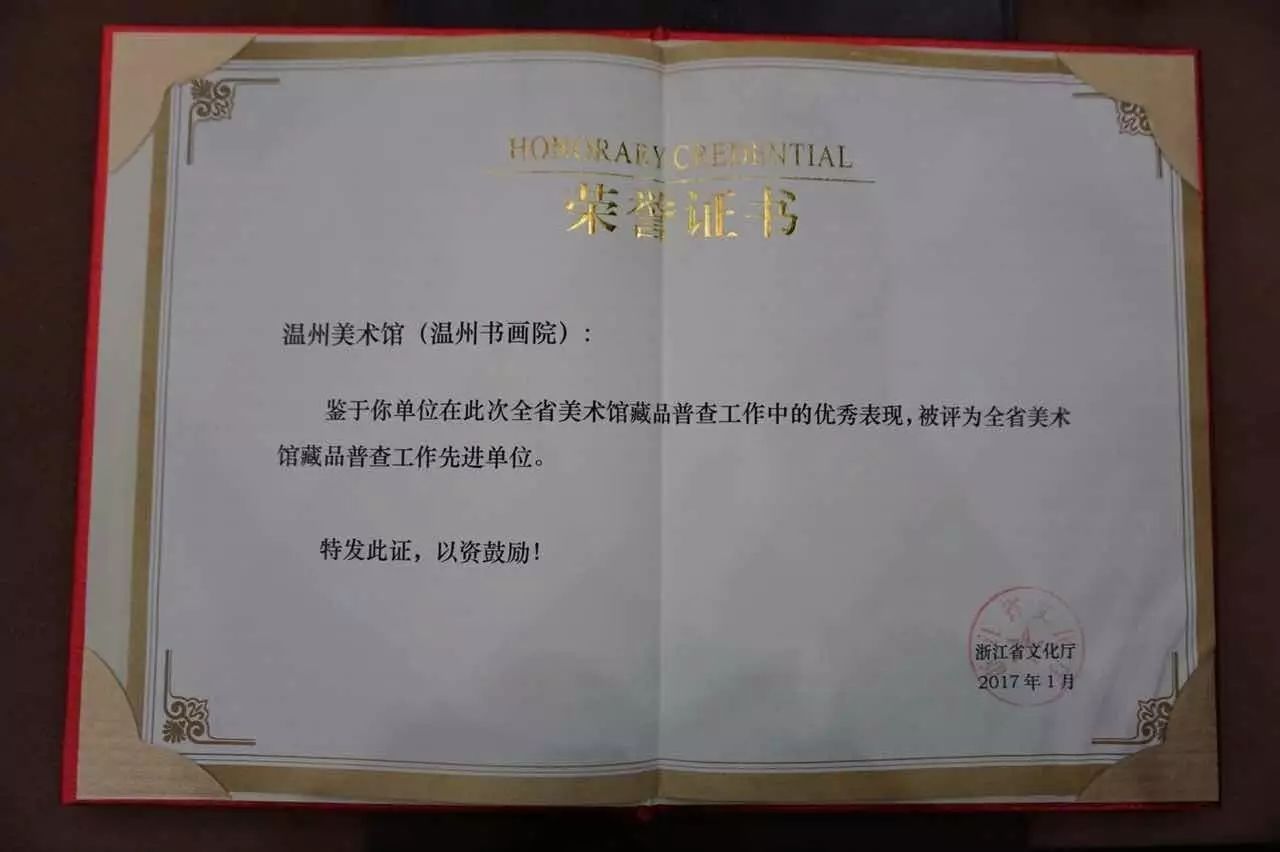 HONORARY CREDENTIAL
荣誉证书
温州美术馆（温州书画院）:
鉴于你单位在此次全省美术馆藏品普查工作中的优秀表现,被评为全省美术
馆藏品普查工作先进单位。
特发此证，以资鼓励！
浙江省文化厅
2017年1月